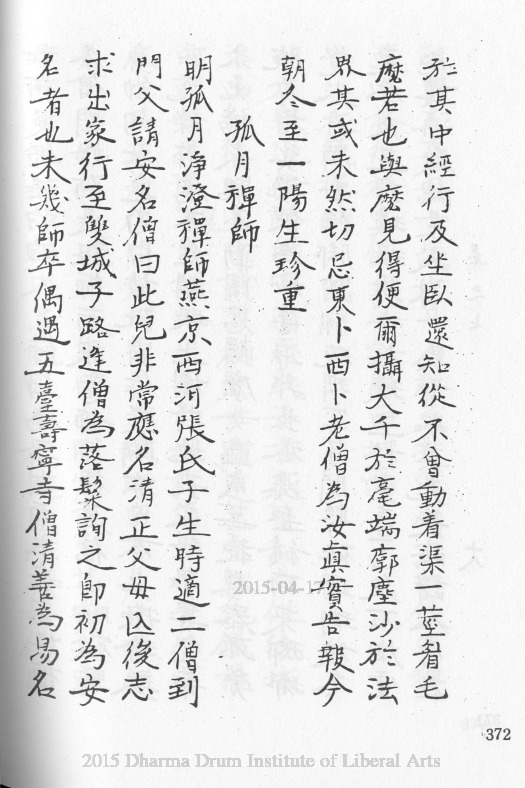 於其中經行及坐臥還知從不曾動着渠一莖眉毛
麽若也與麽見得便爾攝大千於毫端廓塵沙於法
界其或未然切忌東卜西卜老僧為汝真實告報今
朝冬至一陽生珍重
孤月禪師
明孤月淨澄禪師燕京西河張氏子生時適二僧到
門父請安名僧曰此兒非常應名清正父毋亡後志
求出家行至雙城子路逢僧為落髮詢之即初為安
名者也未幾師卒偶遇五臺壽寧寺僧清善為易名
2015-04-17
372
2015 Dharma Drum Institute of Liberal Arts